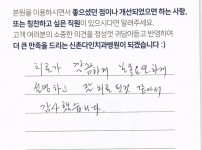 본원을 이용하시면서 좋으셨던 점이나 개선되었으면 하는 사항,
또는 칭찬하고 싶은 직원이 있으시다면 알려주세요.
고객 여러분의 소중한 의견을 정성껏 귀담아듣고 반영하여
더 큰 만족을 드리는 신촌다인치과병원이 되겠습니다 :)
치료가 꼼꼼하게
설명하고 잘 치료 된것 같아서
감사했습니다.